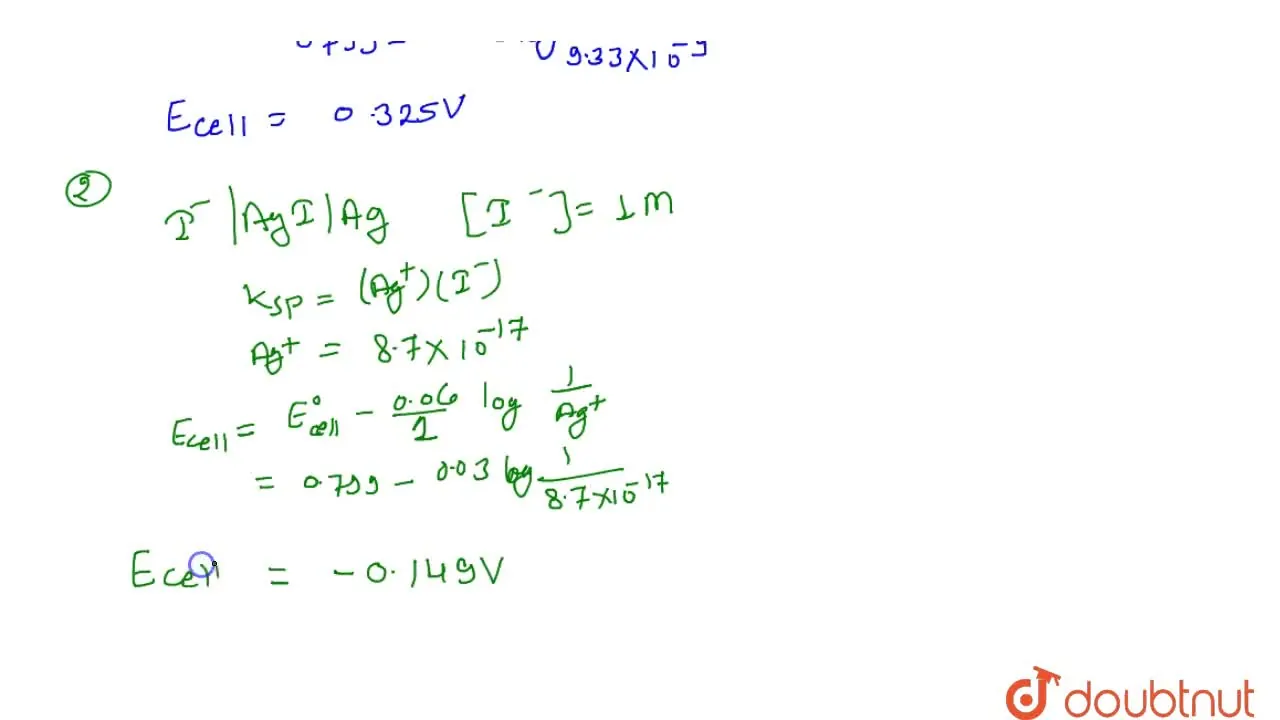 9.33×10⁻⁹
Ecell = 0.325V
②
I⁻ |AgI|Ag [I⁻] = 1M
Ksp = (Ag⁺)(I⁻)
Ag⁺ = 8.7×10⁻¹⁷
Ecell = E°cell - 0.06/2 log 1/Ag⁺
= 0.799 - 0.03 log 1/8.7×10⁻¹⁷
Ecell = -0.149V
doubtnut